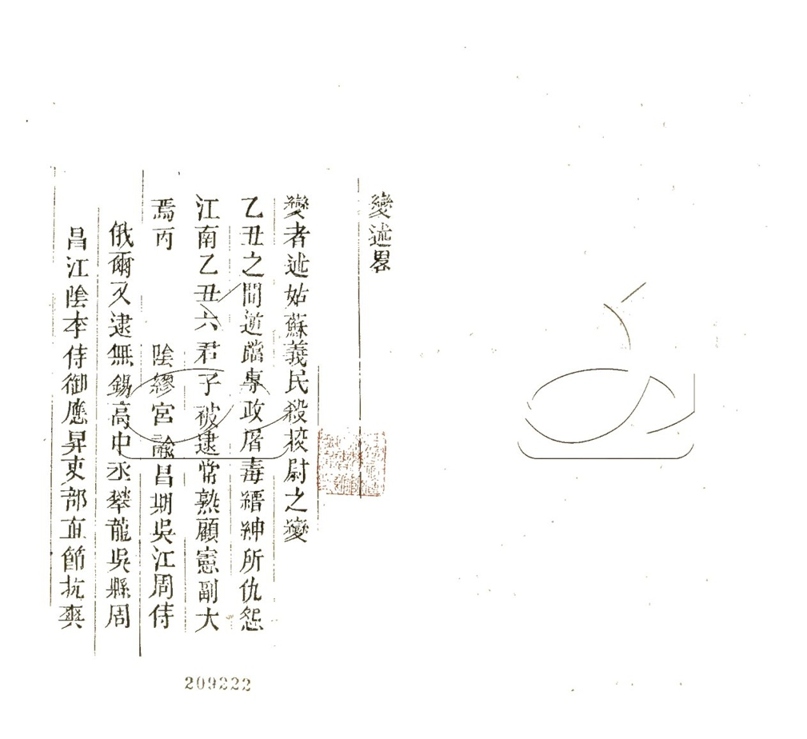 變述畧
變者述姑蘇義民殺校尉之變
乙丑之間逆璫專政屠毒縉紳所仇怨
江南乙丑六君子被逮常熟顧憲副大
焉丙 陰繆宮諭昌期吳江周侍
俄爾又逮無錫高中丞攀龍吳縣周
昌江陰李侍御應昇吏部直節抗爽
209222